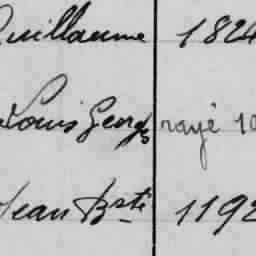 Guillaume 1824
Louis Georg rayé 10
Jean Bste 1192